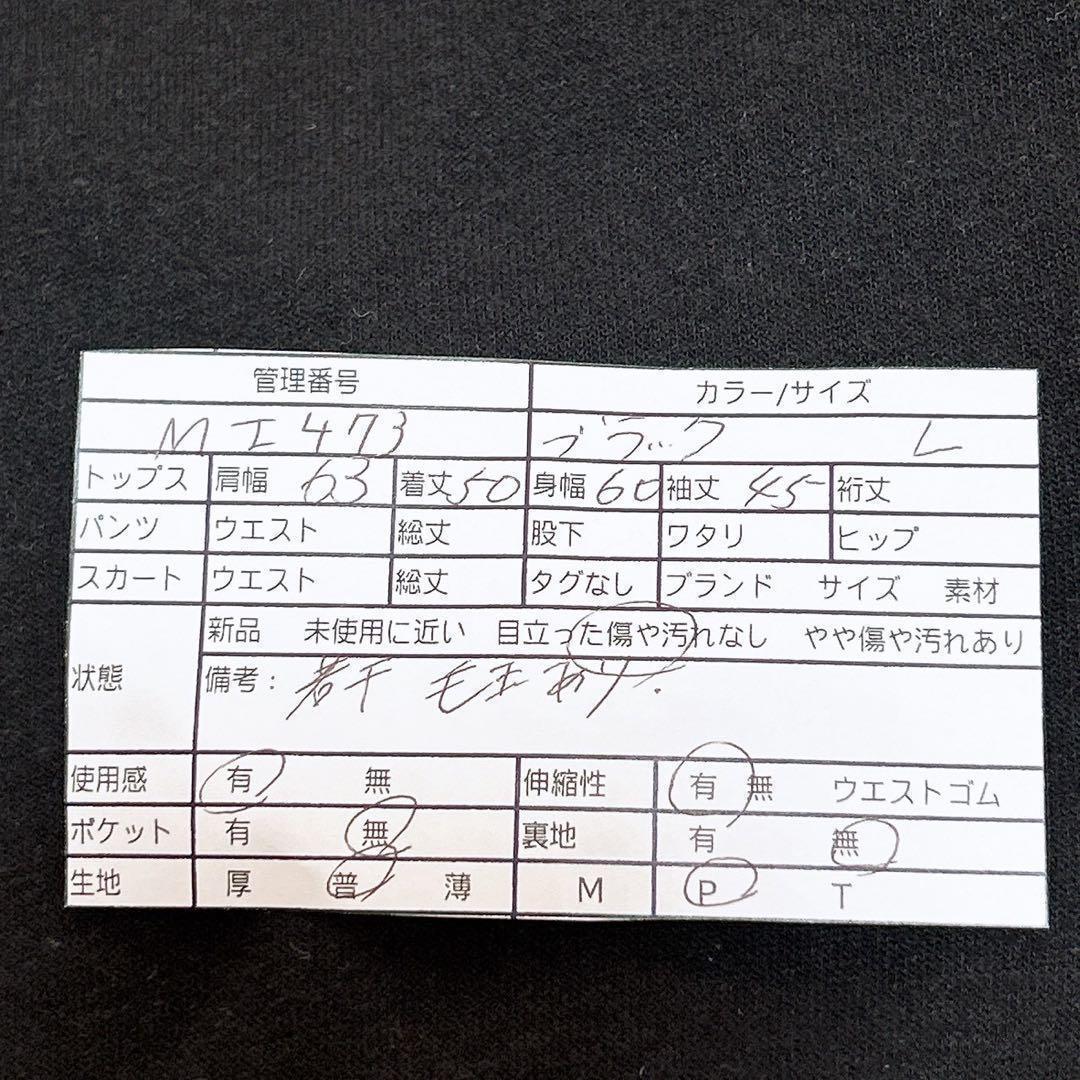 管理番号 カラー/サイズ
MI473 ブラック L
トップス 肩幅 63 着丈 50 身幅 60 袖丈 45 裄丈
パンツ ウエスト 総丈 股下 ワタリ ヒップ
スカート ウエスト 総丈 タグなし ブランド サイズ 素材
新品 未使用に近い 目立った傷や汚れなし やや傷や汚れあり
状態 備考: 若干 毛玉あり.
使用感 有 無 伸縮性 有 無 ウエストゴム
ポケット 有 無 裏地 有 無
生地 厚 普 薄 M P T